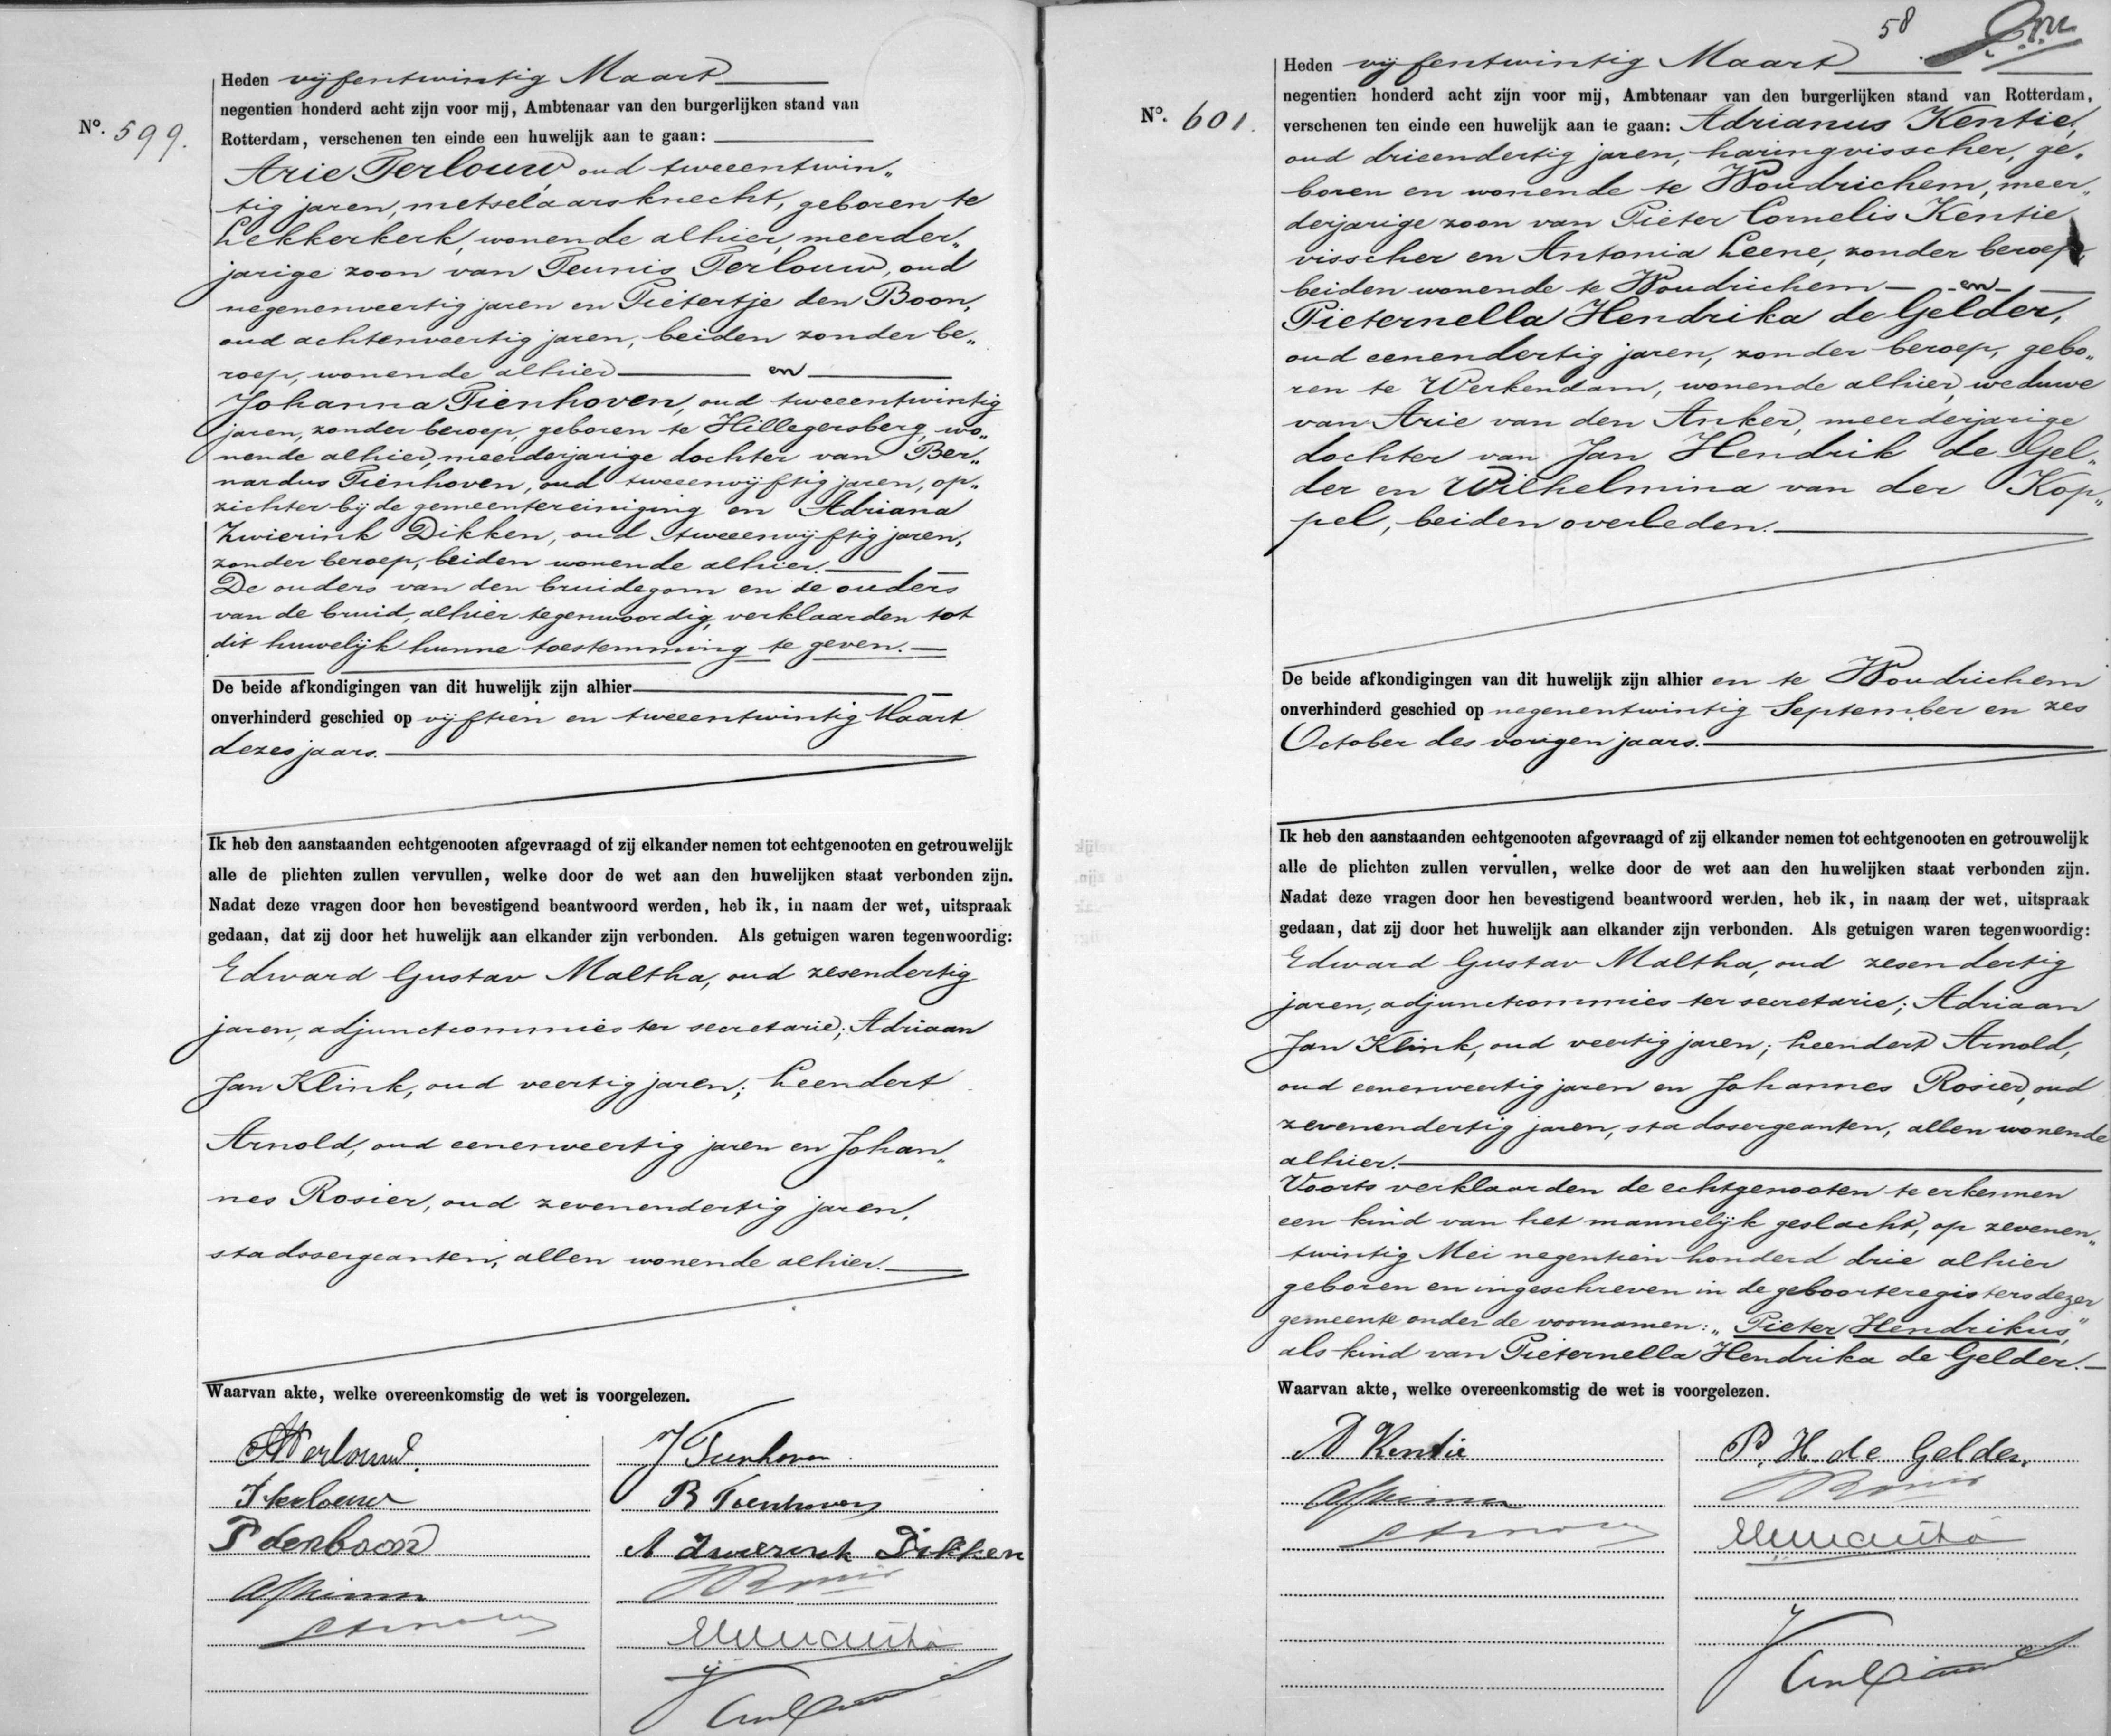 Heden vijfentwintig Maart
negentien honderd acht zijn voor mij, Ambtenaar van den burgerlijken stand van
No. 599.
Rotterdam, verschenen ten einde een huwelijk aan te gaan:
Arie Terlouw, oud tweeentwin„
tig jaren, metselaarsknecht, geboren te
Lekkerkerk, wonende alhier, meerder„
jarige zoon van Teunis Terlouw, oud
negenenveertig jaren en Pietertje den Boon,
oud achtenveertig jaren, beiden zonder be„
roep, wonende alhier en
Johanna Tienhoven, oud tweeentwintig
jaren, zonder beroep, geboren te Hillegersberg, wo„
nende alhier, meerderjarige dochter van Ber„
nardus Tienhoven, oud tweeenvijftig jaren, op„
zichter bij de gemeentereiniging en Adriana
Zwierink Dikken, oud tweeenvijftig jaren,
zonder beroep, beiden wonende alhier.
De ouders van den bruidegom en de ouders
van de bruid, alhier tegenwoordig, verklaarden tot
dit huwelijk hunne toestemming te geven.
De beide afkondigingen van dit huwelijk zijn alhier
onverhinderd geschied op vijftien en tweeentwintig Maart
dezes jaars.
Ik heb den aanstaanden echtgenooten afgevraagd of zij elkander nemen tot echtgenooten en getrouwelijk
alle de plichten zullen vervullen, welke door de wet aan den huwelijken staat verbonden zijn.
Nadat deze vragen door hen bevestigend beantwoord werden, heb ik, in naam der wet, uitspraak
gedaan, dat zij door het huwelijk aan elkander zijn verbonden. Als getuigen waren tegenwoordig:
Edward Gustav Maltha, oud zesendertig
jaren, adjunctcommies ter secretarie; Adriaan
Jan Klink, oud veertig jaren; Leendert
Arnold, oud eenenveertig jaren en Johan„
nes Rosier, oud zevenendertig jaren,
stadssergeanten, allen wonende alhier.
Waarvan akte, welke overeenkomstig de wet is voorgelezen.
ATerlouw.
J Tienhoven
T terlouw
B Tienhoven
P denboon
A Zwierink Dikken
58
Heden vijfentwintig Maart
negentien honderd acht zijn voor mij, Ambtenaar van den burgerlijken stand van Rotterdam,
No. 601.
verschenen ten einde een huwelijk aan te gaan: Adrianus Kentie,
oud drieendertig jaren, haringvisscher, ge„
boren en wonende te Woudrichem, meer„
derjarige zoon van Pieter Cornelis Kentie
visscher en Antonia Leene, zonder beroep,
beiden wonende te Woudrichem en
Pieternella Hendrika de Gelder,
oud eenendertig jaren, zonder beroep, gebo„
ren te Werkendam, wonende alhier, weduwe
van Arie van den Anker, meerderjarige
dochter van Jan Hendrik de Gel„
der en Wilhelmina van der Kop„
pel, beiden overleden.
De beide afkondigingen van dit huwelijk zijn alhier en te Woudrichem
onverhinderd geschied op negenentwintig September en zes
October des vorigen jaars.
Ik heb den aanstaanden echtgenooten afgevraagd of zij elkander nemen tot echtgenooten en getrouwelijk
alle de plichten zullen vervullen, welke door de wet aan den huwelijken staat verbonden zijn.
Nadat deze vragen door hen bevestigend beantwoord werden, heb ik, in naam der wet, uitspraak
gedaan, dat zij door het huwelijk aan elkander zijn verbonden. Als getuigen waren tegenwoordig:
Edward Gustav Maltha, oud zesendertig
jaren, adjunctcommies ter secretarie; Adriaan
Jan Klink, oud veertig jaren; Leendert Arnold,
oud eenenveertig jaren en Johannes Rosier, oud
zevenendertig jaren, stadssergeanten, allen wonende
alhier.
Voorts verklaarden de echtgenooten te erkennen
een kind van het mannelijk geslacht, op zevenen„
twintig Mei negentien honderd drie alhier
geboren en ingeschreven in de geboorteregisters dezer
gemeente onder de voornamen: „Pieter Hendrikus,”
als kind van Pieternella Hendrika de Gelder.
Waarvan akte, welke overeenkomstig de wet is voorgelezen.
A Kentie
P. H. de Gelder.